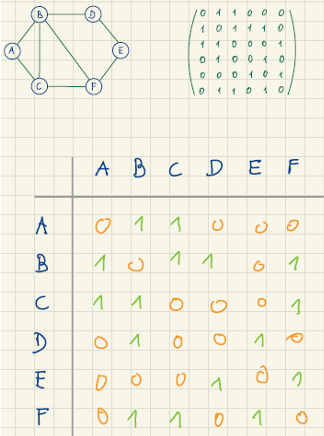 B D
A E
C F
0 1 1 0 0 0
1 0 1 1 1 0
1 1 0 0 0 1
0 1 0 0 1 0
0 0 0 1 0 1
0 1 1 0 1 0
A B C D E F
A 0 1 1 0 0 0
B 1 0 1 1 0 1
C 1 1 0 0 0 1
D 0 1 0 0 1 0
E 0 0 0 1 0 1
F 0 1 1 0 1 0